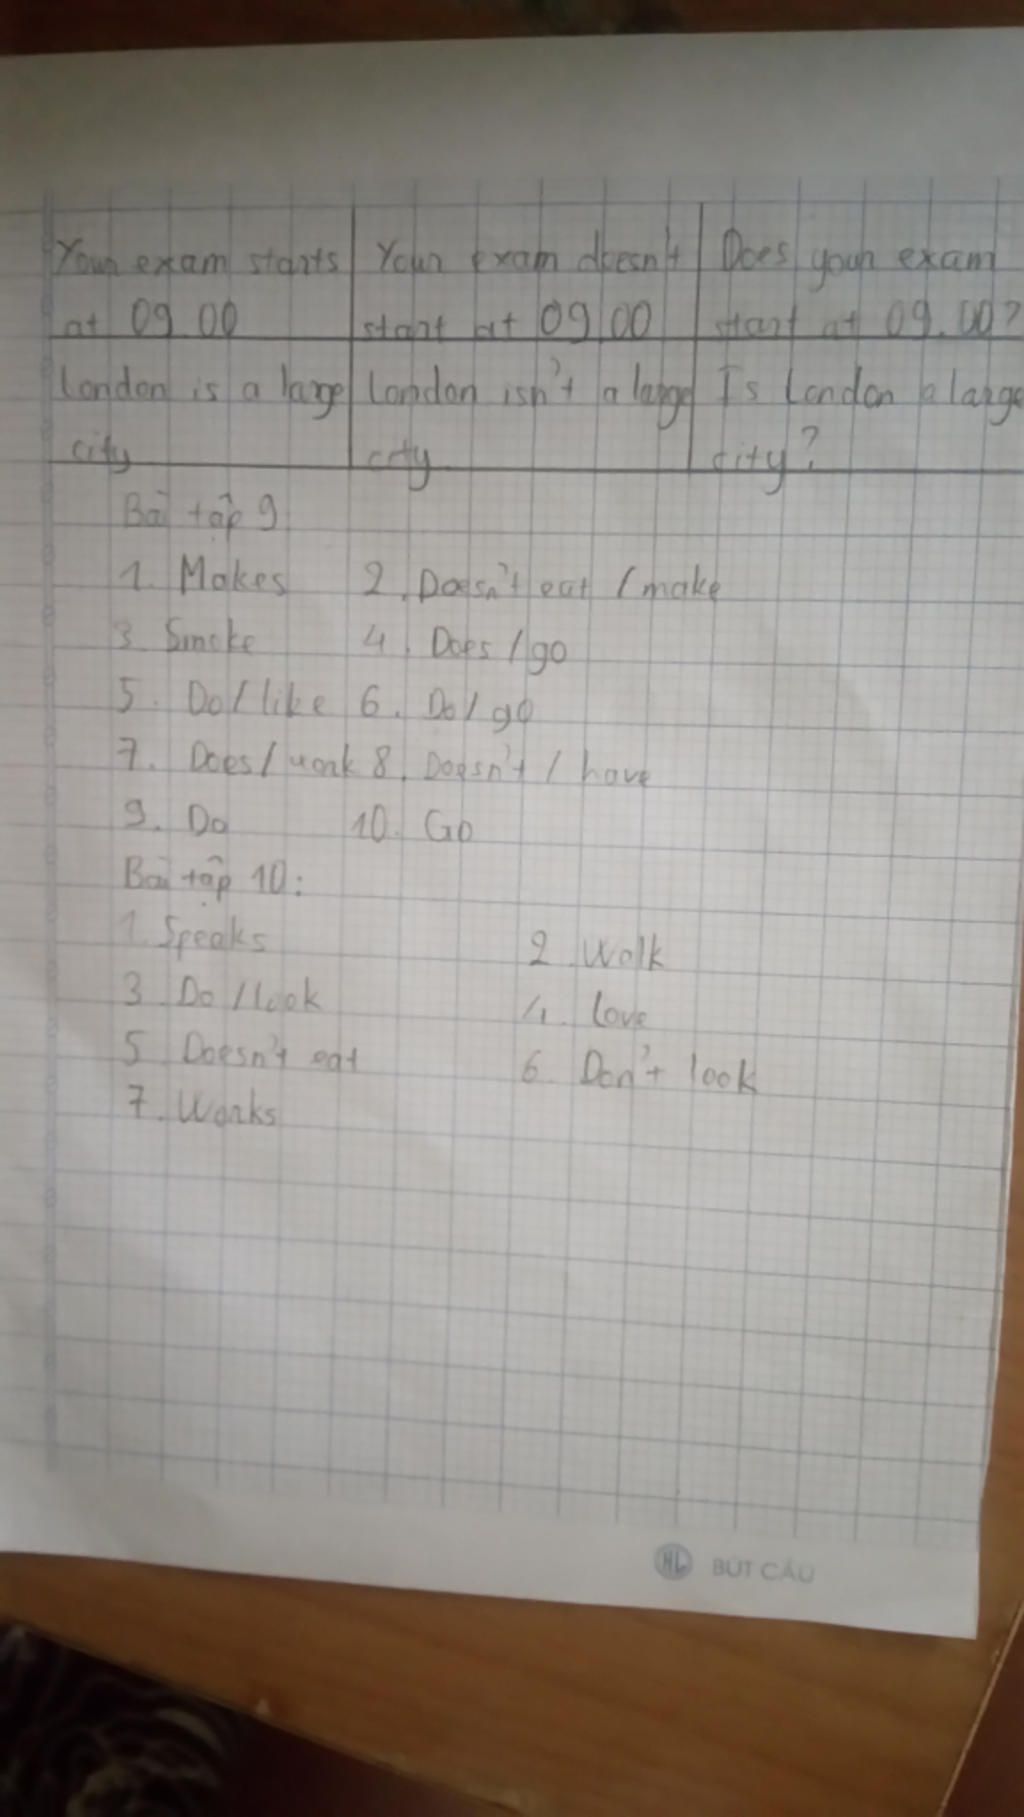 Your exam starts at 09.00
Your exam doesn't start at 09.00
Does your exam start at 09.00?
London is a large city
London isn't a large city
Is London a large city?
Bài tập 9
1. Makes 2. Doesn't eat / make
3. Smoke 4. Does / go
5. Do / like 6. Do / go
7. Does / work 8. Doesn't / have
9. Do 10. Go
Bài tập 10:
1. Speaks 2. Walk
3. Do / look 4. Love
5. Doesn't eat 6. Don't look
7. Works
HL BÚT CÂU